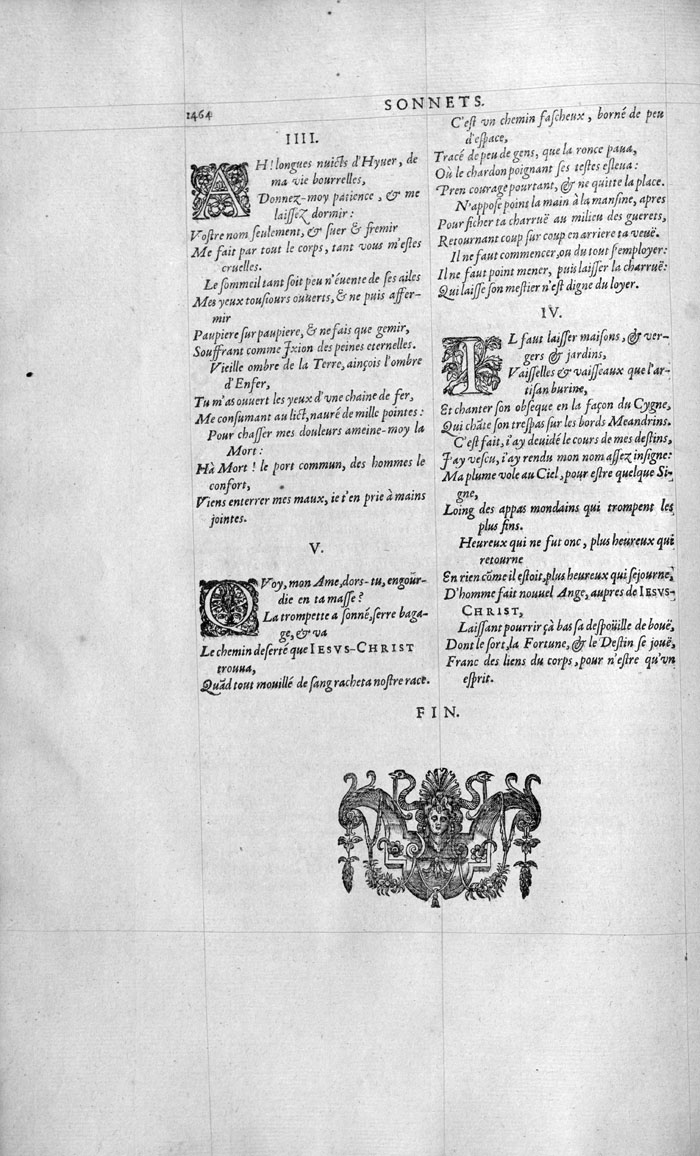 1464
SONNETS.
IIII.
AH! longues nuicts d'Hyuer, de
ma vie bourrelles,
Donnez-moy patience, & me
laissez dormir:
Vostre nom seulement, & suer & fremir
Me fait par tout le corps, tant vous m'estes
cruelles.
Le sommeil tant soit peu n'éuente de ses ailes
Mes yeux tousiours ouuerts, & ne puis affer-
mir
Paupiere sur paupiere, & ne fais que gemir,
Souffrant comme Ixion des peines eternelles.
Vieille ombre de la Terre, ainçois l'ombre
d'Enfer,
Tu m'as ouuert les yeux d'vne chaine de fer,
Me consumant au lict, nauré de mille pointes:
Pour chasser mes douleurs ameine-moy la
Mort:
Hà Mort! le port commun, des hommes le
confort,
Viens enterrer mes maux, ie t'en prie à mains
jointes.
V.
QVoy, mon Ame, dors-tu, engour-
die en ta masse?
La trompette a sonné, serre baga-
ge, & va
Le chemin deserté que IESVS-CHRIST
trouua,
Quãd tout mouillé de sang racheta nostre race.
C'est vn chemin fascheux, borné de peu
d'espace,
Tracé de peu de gens, que la ronce paua,
Où le chardon poignant ses testes esleua:
Pren courage pourtant, & ne quitte la place.
N'appose point la main à la mansine, apres
Pour ficher ta charruë au milieu des guerets,
Retournant coup sur coup en arriere ta veuë.
Il ne faut commencer, ou du tout s'employer:
Il ne faut point mener, puis laisser la charruë:
Qui laisse son mestier n'est digne du loyer.
IV.
IL faut laisser maisons, & ver-
gers & jardins,
Vaisselles & vaisseaux que l'ar-
tisan burine,
Et chanter son obseque en la façon du Cygne,
Qui chãte son trespas sur les bords Meandrins.
C'est fait, i'ay deuidé le cours de mes destins,
J'ay vescu, i'ay rendu mon nom assez insigne:
Ma plume vole au Ciel, pour estre quelque Si-
gne,
Loing des appas mondains qui trompent les
plus fins.
Heureux qui ne fut onc, plus heureux qui
retourne
En rien cõme il estoit, plus heureux qui sejourne,
D'homme fait nouuel Ange, aupres de IESVS-
CHRIST,
Laissant pourrir çà bas sa despoüille de bouë,
Dont le sort, la Fortune, & le Destin se jouë,
Franc des liens du corps, pour n'estre qu'vn
esprit.
FIN.